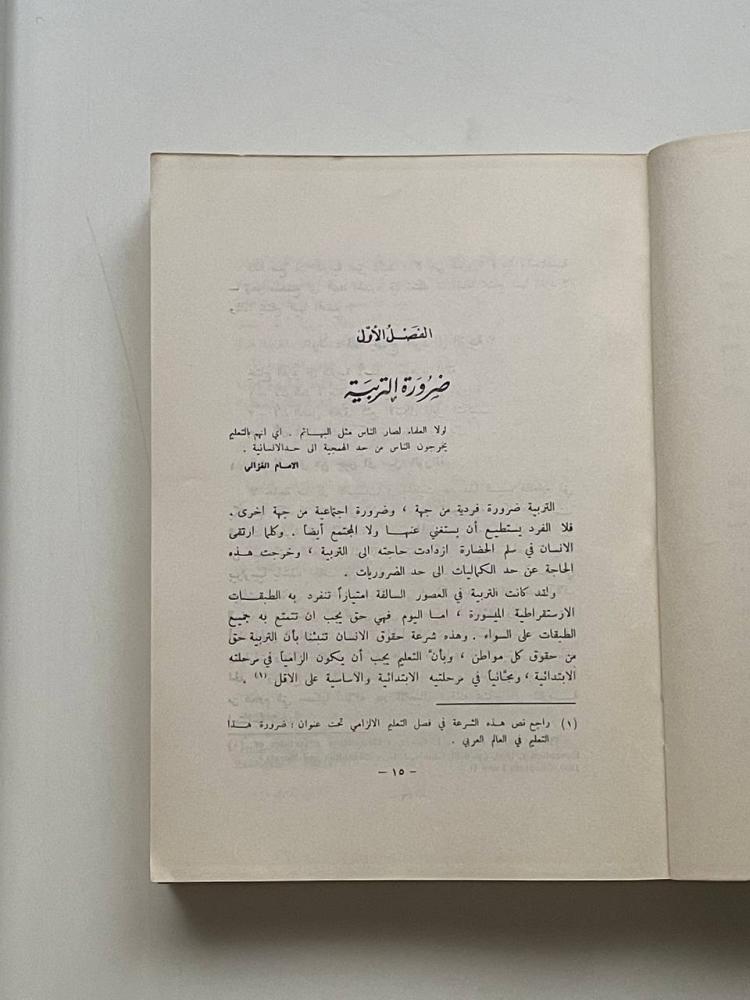 الفصل الأول
ضرورة التربية
لولا العلماء لصار الناس مثل البهائم . اي انهم بالتعليم
يخرجون الناس من حد الهمجية الى حد الانسانية .
الامام الغزالي
التربية ضرورة فردية من جهة ، وضرورة اجتماعية من جهة اخرى .
فلا الفرد يستطيع أن يستغني عنها ولا المجتمع أيضاً . وكلما ارتقى
الانسان في سلم الحضارة ازدادت حاجته الى التربية ، وخرجت هذه
الحاجة عن حد الكماليات الى حد الضروريات .
ولقد كانت التربية في العصور السالفة امتيازاً تنفرد به الطبقات
الارستقراطية الميسورة ، اما اليوم فهي حق يجب ان تتمتع به جميع
الطبقات على السواء . وهذه شرعة حقوق الانسان تنبئنا بأن التربية حق
من حقوق كل مواطن ، وبأنّ التعليم يجب أن يكون الزامياً في مرحلته
الابتدائية ، ومجّانياً في مرحلتيه الابتدائية والاساسية على الاقل (١) .
(١) راجع نص هذه الشرعة في فصل التعليم الالزامي تحت عنوان : ضرورة هذا
التعليم في العالم العربي .
- ١٥ -